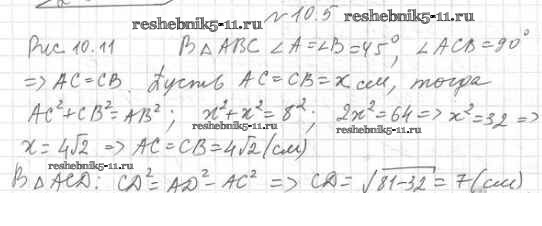 № 10.5
reshebnik5-11.ru reshebnik5-11.ru
Рис 10.11 В △ ABC ∠A=∠B=45°, ∠ACB=90°
=> AC=CB. Пусть AC=CB=x см, тогда
AC²+CB²=AB²; x²+x²=8²; 2x²=64=>x²=32 =>
reshebnik5-11.ru reshebnik5-11.ru
x=4√2 => AC=CB=4√2 (см)
reshebnik5-11.ru
В △ ACD: CD²=AD²-AC² => CD=√81-32=7(см)